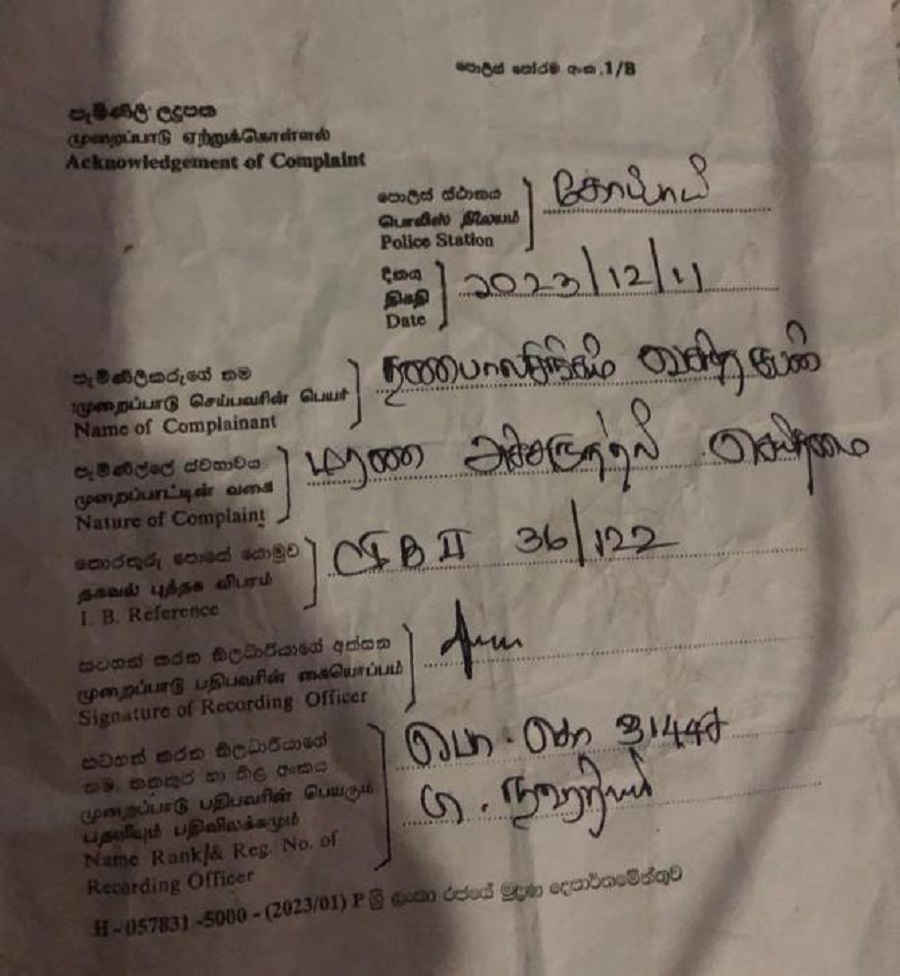 පොලිස් පෝරම අංක.1/B
පැමිණිලි ලදුපත
முறைப்பாடு ஏற்றுக்கொள்ளல்
Acknowledgement of Complaint
පොලිස් ස්ථානය
பொலிஸ் நிலையம்
Police Station
கோப்பாய்
දිනය
திகதி
Date
2023/12/11
පැමිණිලිකරුගේ නම
முறைப்பாடு செய்பவரின் பெயர்
Name of Complainant
குணபாலசிங்கம்
පැමිණිල්ලේ ස්වභාවය
முறைப்பாட்டின் வகை
Nature of Complaint
மரண அச்சுறுத்தல்
තොරතුරු පොතේ යොමුව
தகவல் புத்தக விபரம்
I. B. Reference
CIB II 36/122
සටහන් කරන නිලධාරියාගේ අත්සන
முறைப்பாடு பதிபவரின் கையொப்பம்
Signature of Recording Officer
සටහන් කරන නිලධාරියාගේ
නම, තනතුර හා නිල අංකය
முறைப்பாடு பதிபவரின் பெயரும்
பதவியும் பதிவிலக்கமும்
Name Rank/& Reg. No. of
Recording Officer
பொ. கொ
H - 057831 -5000 - (2023/01) P ශ්‍රී ලංකා රජයේ මුද්‍රණ දෙපාර්තමේන්තුව